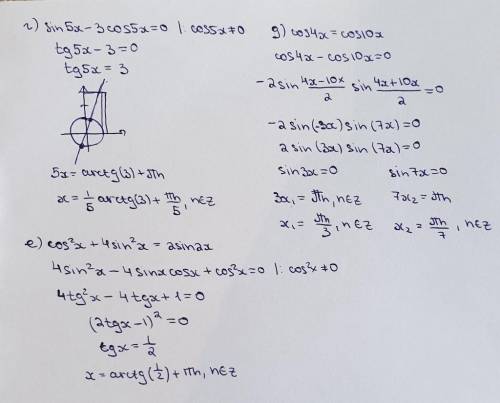 г) sin5x-3cos5x=0 |:cos5x≠0
tg5x-3=0
tg5x=3
5x=arctg(3)+πn
x=1/5 arctg(3)+πn/5, n∈Z
д) cos4x=cos10x
cos4x-cos10x=0
-2sin (4x-10x)/2 sin (4x+10x)/2 =0
-2sin(-3x)sin(7x)=0
2sin(3x)sin(7x)=0
sin3x=0 sin7x=0
3x₁=πn, n∈Z 7x₂=πn
x₁=πn/3, n∈Z x₂=πn/7, n∈Z
е) cos²x+4sin²x=2sin2x
4sin²x-4sinxcosx+cos²x=0 |:cos²x≠0
4tg²x-4tgx+1=0
(2tgx-1)²=0
tgx=1/2
x=arctg(1/2)+πn, n∈Z